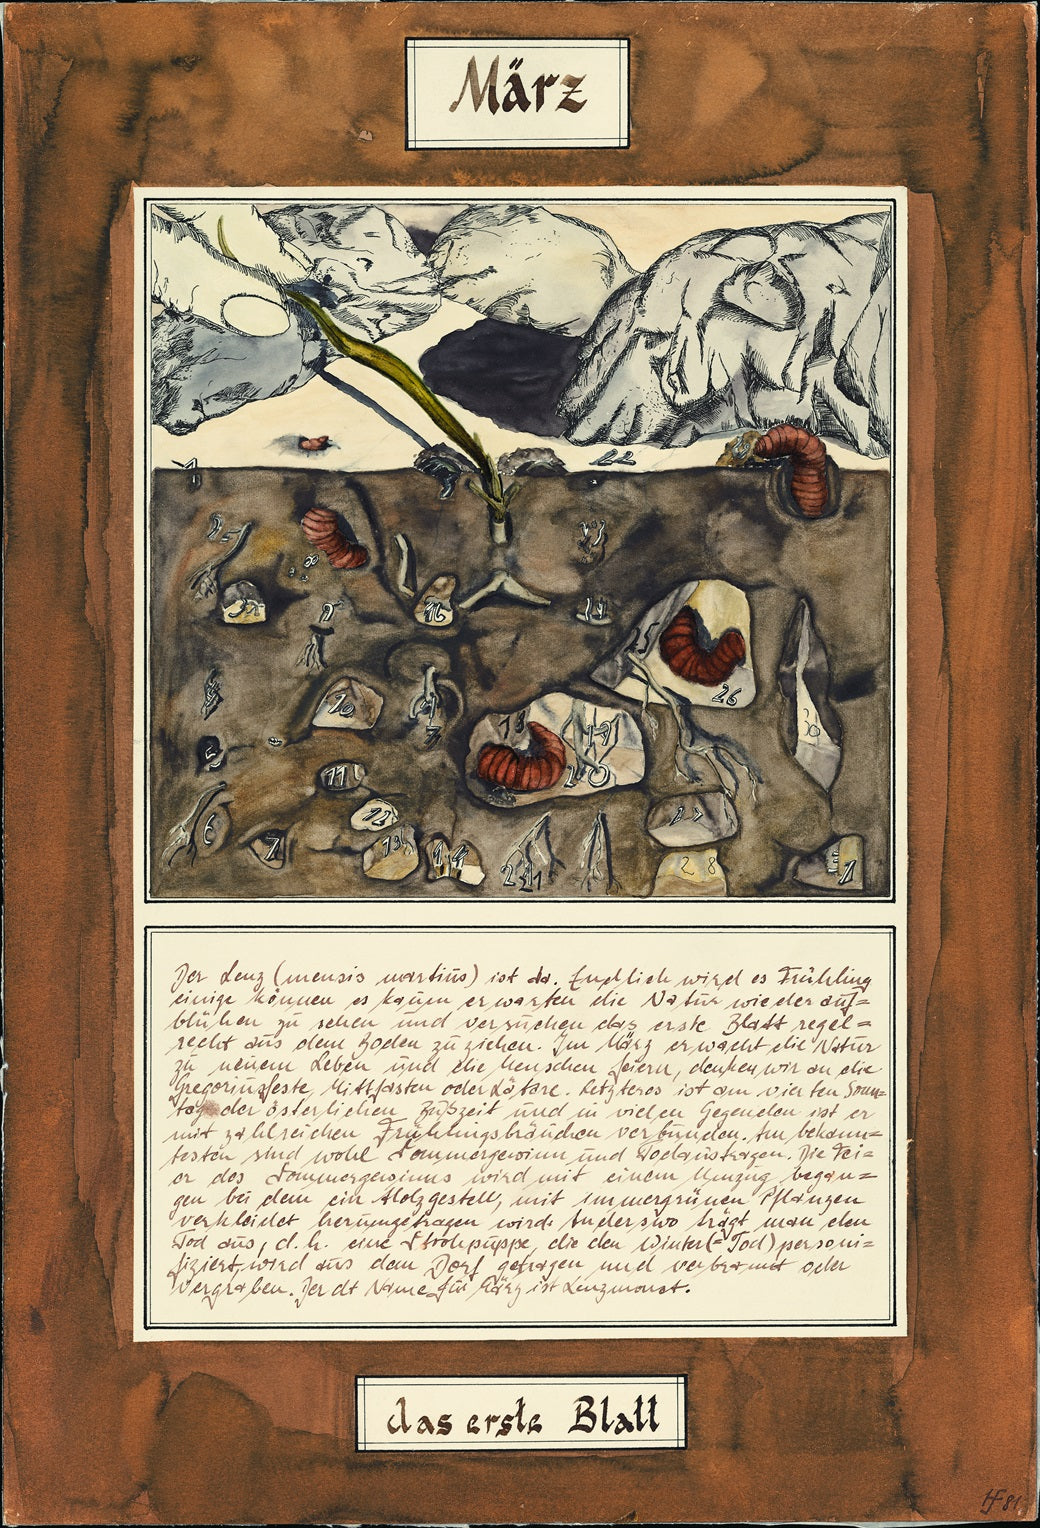 März
1
22
2
3
9
16
19
25
26
10
18
17
20
30
5
11
6
7
12
13
14
21
27
28
Der Lenz (mensis martius) ist da. Endlich wird es Frühling
einige können es kaum erwarten die Natur wieder auf=
blühen zu sehen und versuchen das erste Blatt regel=
recht aus dem Boden zu ziehen. Im März erwacht die Natur
zu neuem Leben und die Menschen feiern, denken wir an die
Gregoriusfeste, Mittfasten oder Lätare. Letzteres ist am vierten Sonn=
tag der österlichen Bußzeit und in vielen Gegenden ist er
mit zahlreichen Frühlingsbräuchen verbunden. Am bekann=
testen sind wohl Sommergewinn und Todaustragen. Die Fei=
er des Sommergewinns wird mit einem Umzug began=
gen bei dem ein Holzgestell, mit immergrünen Pflanzen
verkleidet herumgetragen wird. Anderswo trägt man den
Tod aus, d.h. eine Strohpuppe, die den Winter (=Tod) personi=
fiziert, wird aus dem Dorf getragen und verbrannt oder
vergraben. Der dt Name für März ist Lenzmonat.
das erste Blatt
HF 81